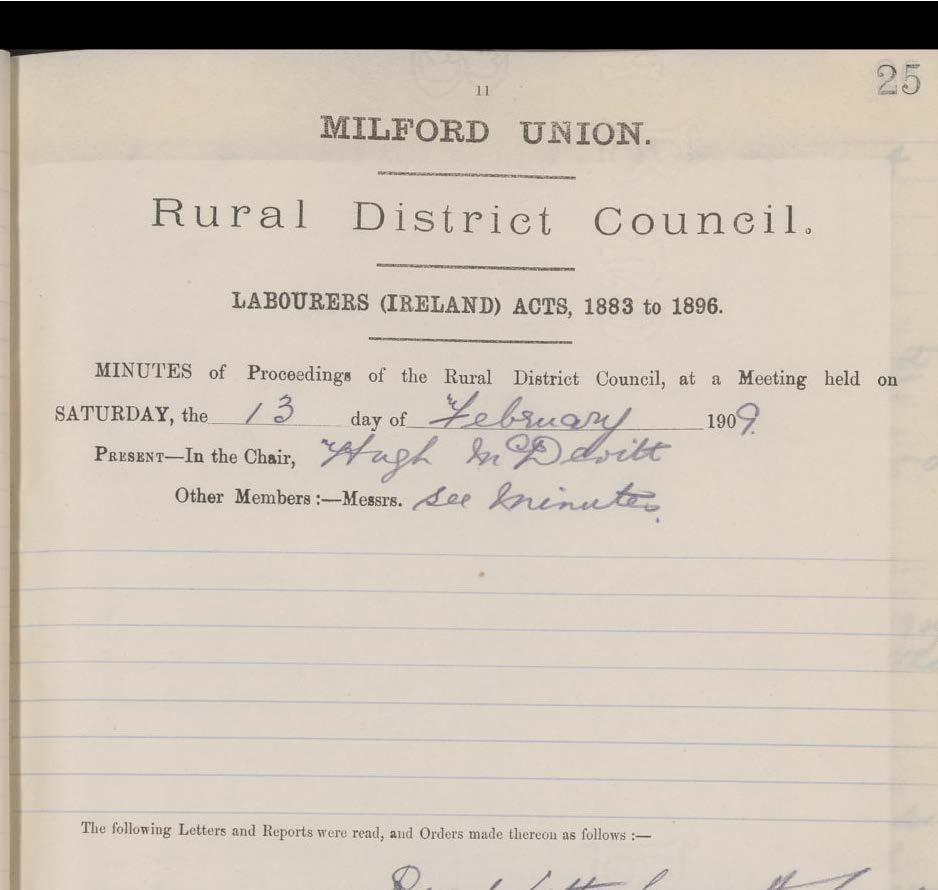 25
11
MILFORD UNION.
Rural District Council.
LABOURERS (IRELAND) ACTS, 1883 to 1896.
MINUTES of Proceedings of the Rural District Council, at a Meeting held on
SATURDAY, the 13 day of February 1909.
PRESENT—In the Chair, Hugh McDevitt
Other Members :—Messrs. see minutes.
The following Letters and Reports were read, and Orders made thereon as follows :—